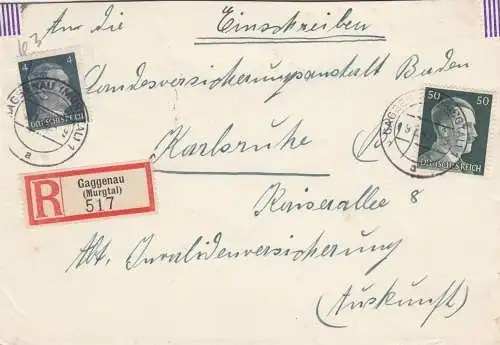 An die
Einschreiben
Landesversicherungsanstalt Baden
Karlsruhe
Kaiserallee 8
Abt. Invalidenversicherung
(Auskunft)
4
DEUTSCHES REICH
50 50
DEUTSCHES REICH
GAGGENAU
a
a
R
Gaggenau
(Murgtal)
517